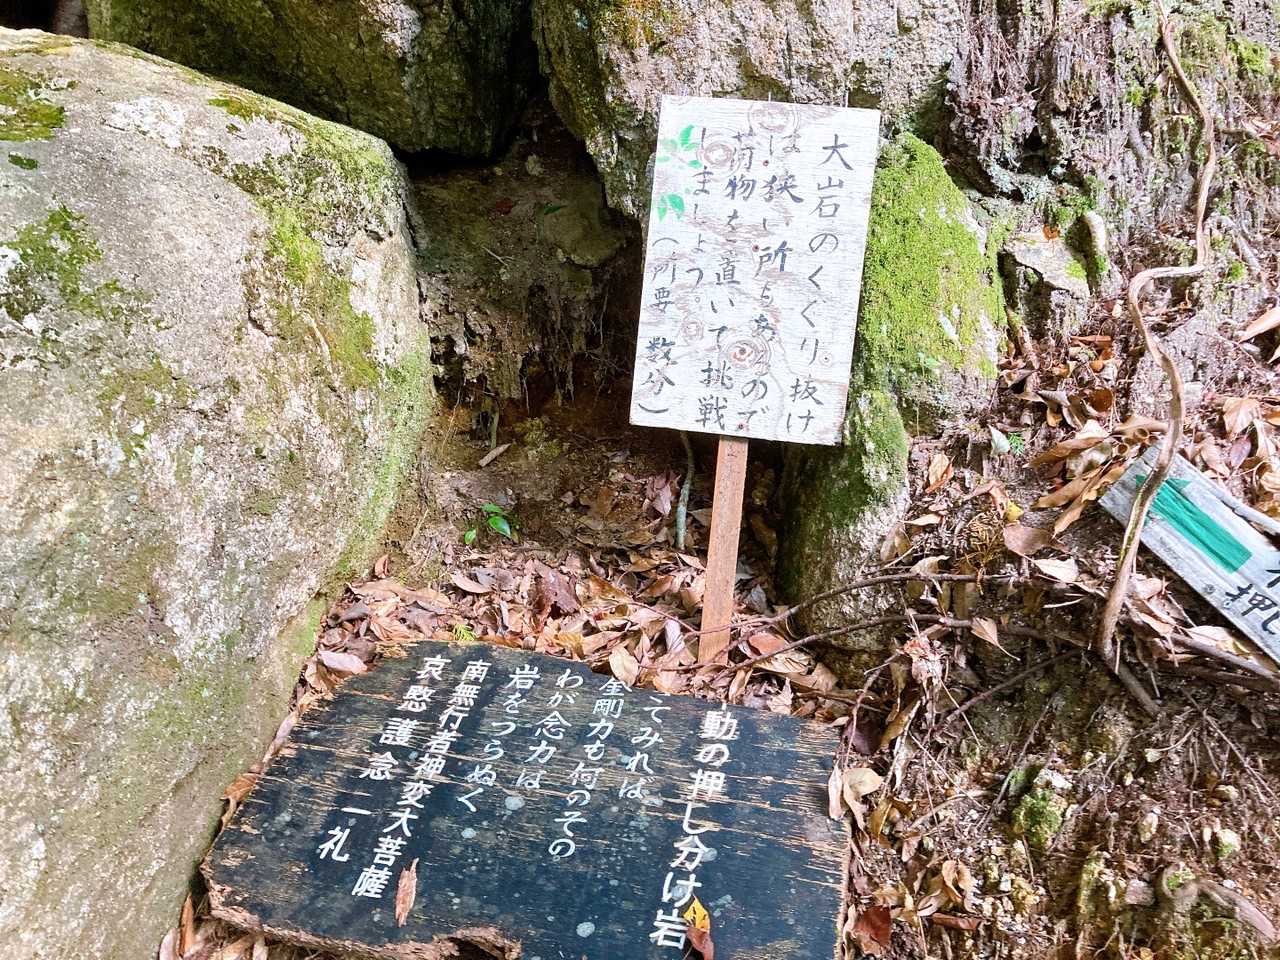 大岩のくぐり抜け
は狭い所もあるので
荷物を置いて挑戦
しましょう。
（所要 数分）
動の押し分け岩
てみれば
金剛力も何のその
わが念力は
岩をつらぬく
南無行者神変大菩薩
哀愍護念 一礼
押